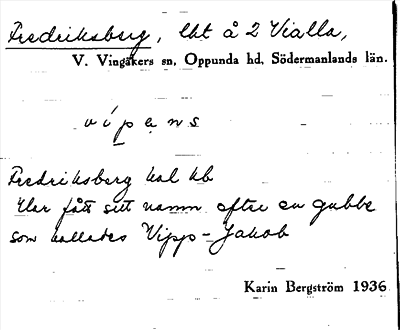 Fredriksberg, lht å 2 Vialla,
V. Vingåkers sn, Oppunda hd, Södermanlands län.
vípens
Fredriksberg kal kb
Har fått sitt namn efter en gubbe
som kallades Vipp-Jakob
Karin Bergström 1936